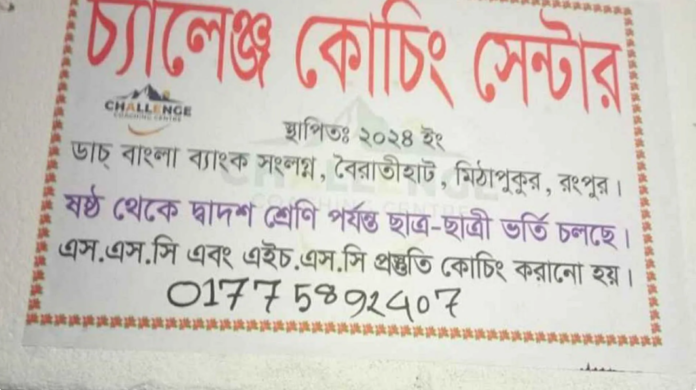 চ্যালেঞ্জ কোচিং সেন্টার
CHALLENGE
COACHING CENTRE
স্থাপিতঃ ২০২৪ ইং
ডাচ্ বাংলা ব্যাংক সংলগ্ন, বৈরাতীহাট, মিঠাপুকুর, রংপুর।
ষষ্ঠ থেকে দ্বাদশ শ্রেণি পর্যন্ত ছাত্র-ছাত্রী ভর্তি চলছে।
এস.এস.সি এবং এইচ.এস.সি প্রস্তুতি কোচিং করানো হয়।
01775892407